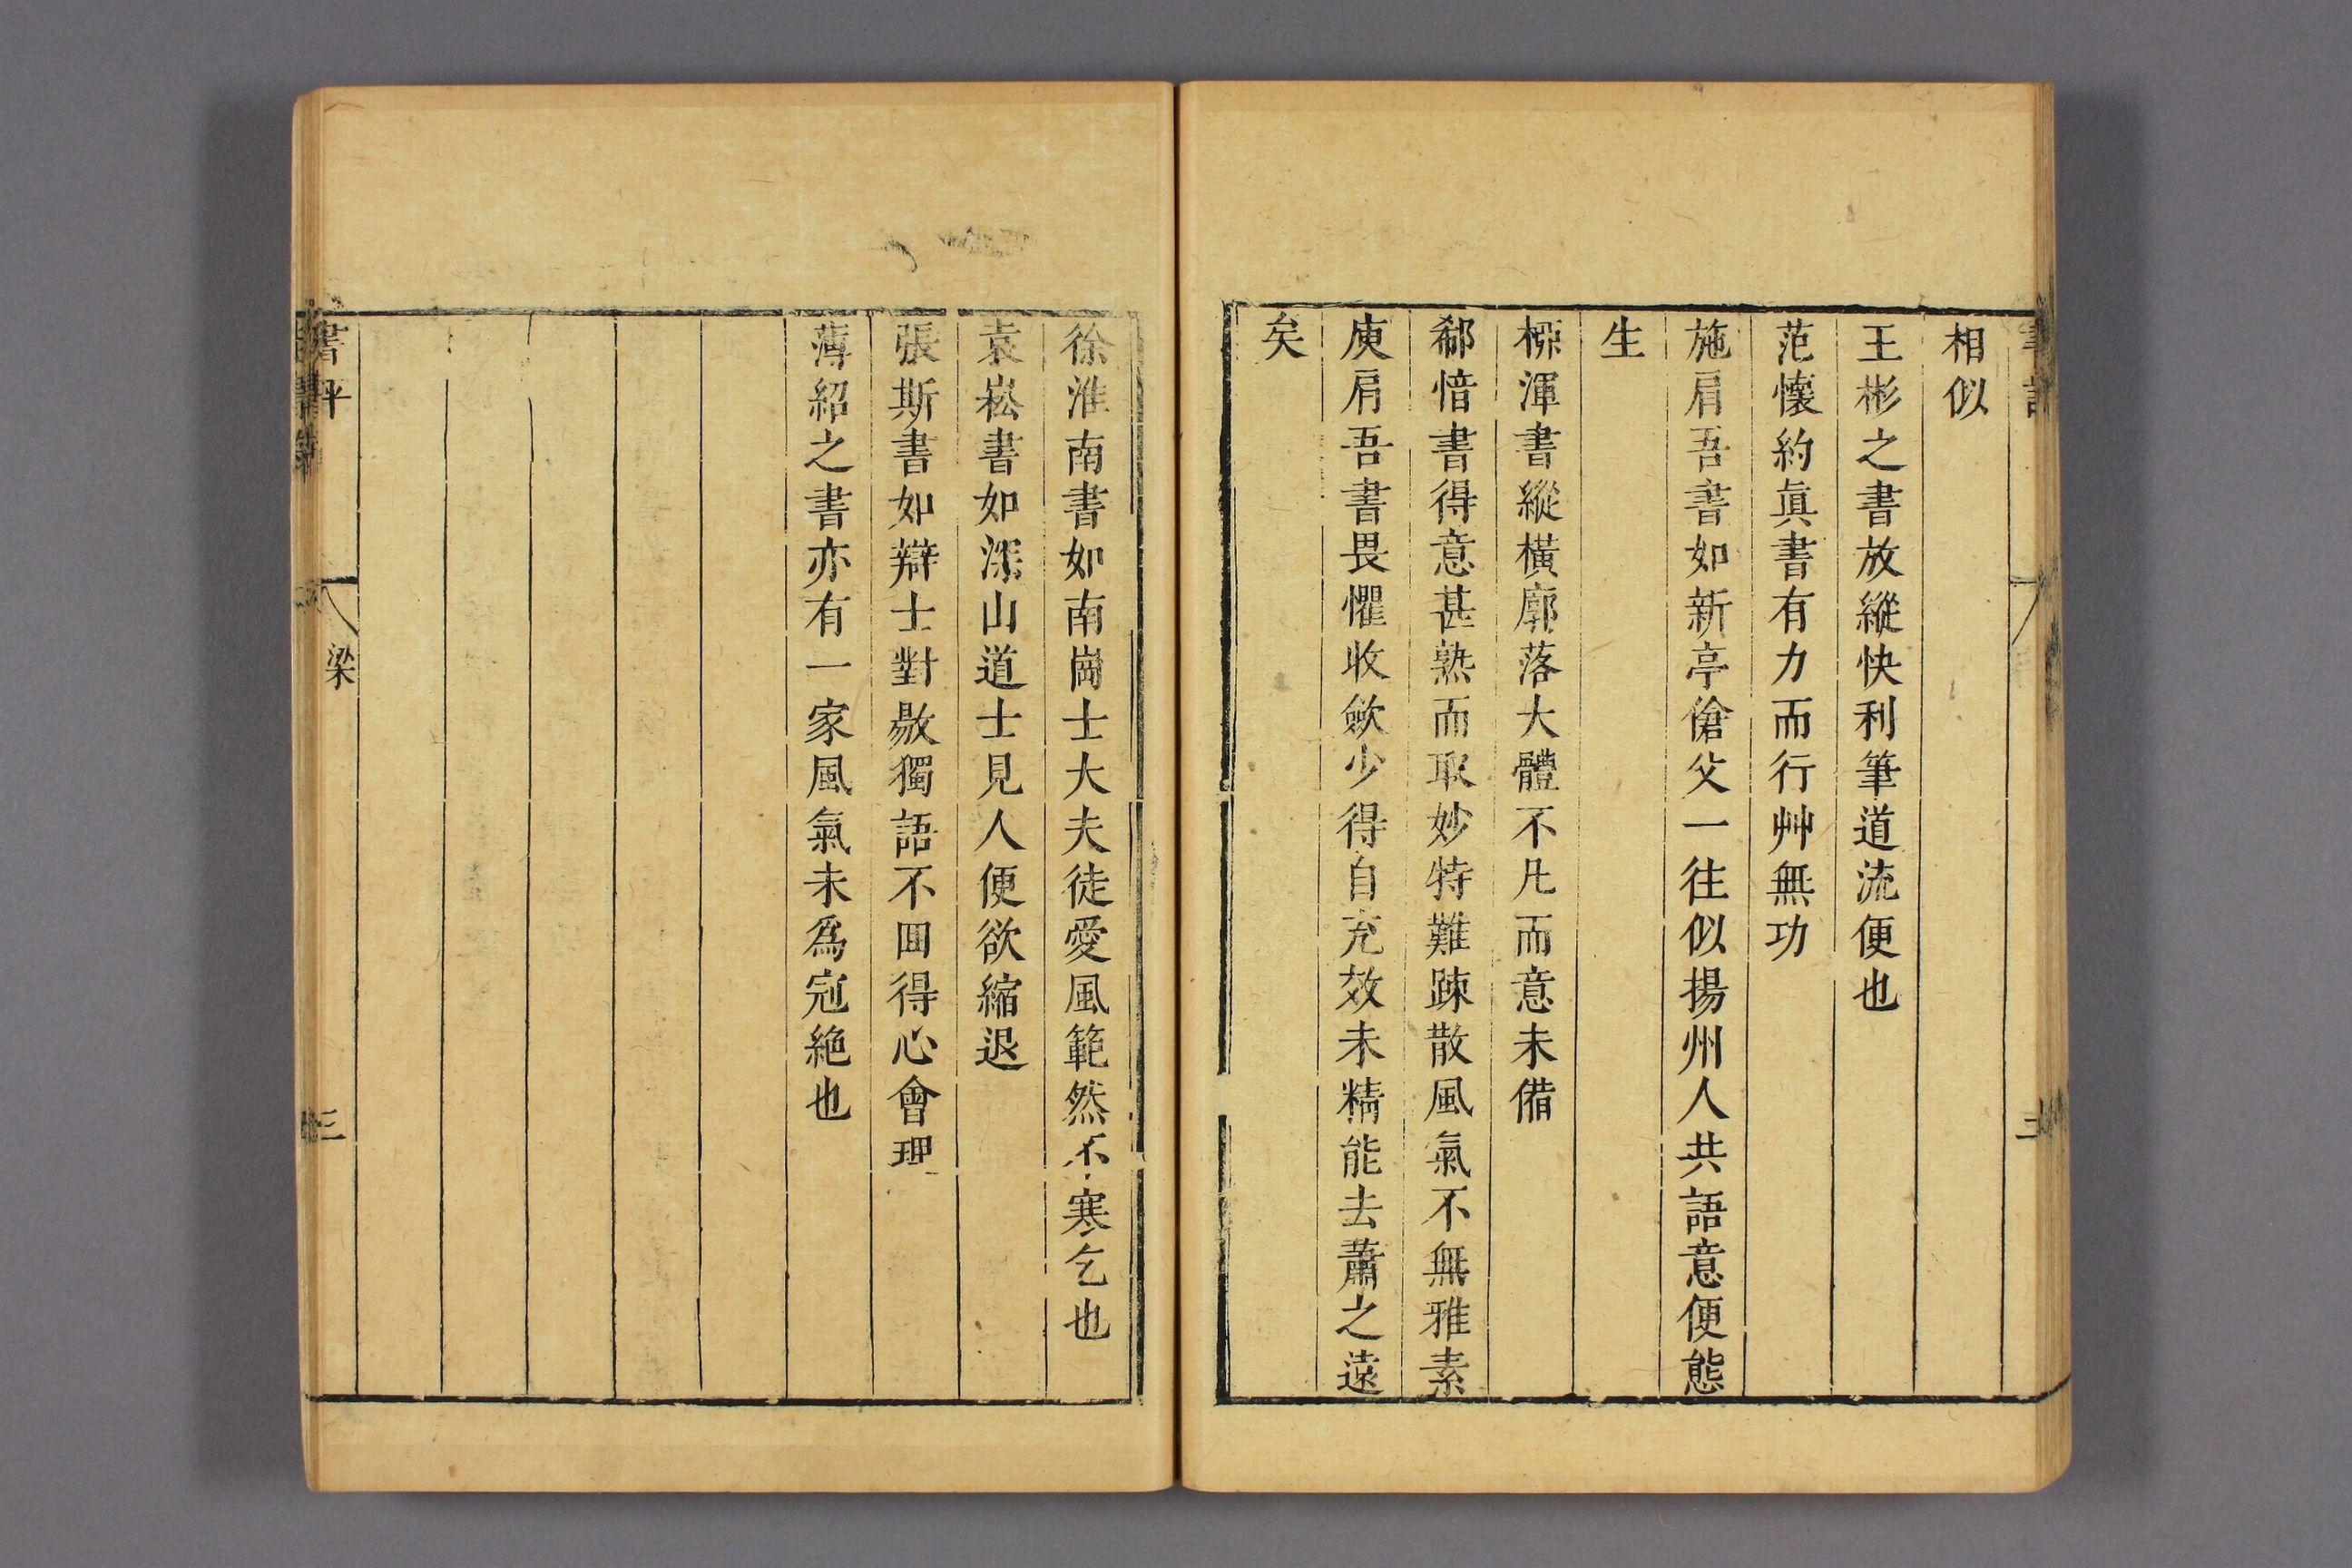 相似
王彬之書放縱快利筆道流便也
范懷約眞書有力而行艸無功
施肩吾書如新亭傖父一往似揚州人共語意便態
生
桺渾書縱橫廓落大體不凡而意未備
郗愔書得意甚熟而取妙特難踈散風氣不無雅素
庾肩吾書畏懼收歛少得自充效未精能去蕭之遠
矣
徐淮南書如南崗士大夫徒愛風範然不寒乞也
袁崧書如深山道士見人便欲縮退
張斯書如辯士對敭獨語不囬得心會理
薄紹之書亦有一家風氣未爲冠絶也
書評
梁
三